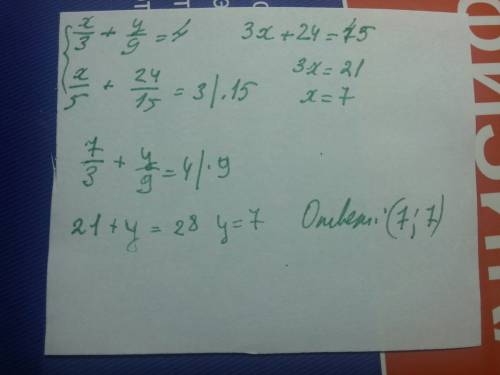 x/3 + y/9 = 4
x/5 + 24/15 = 3 | · 15
3x + 24 = 45
3x = 21
x = 7
7/3 + y/9 = 4 | · 9
21 + y = 28 y = 7
Ответ: (7; 7)